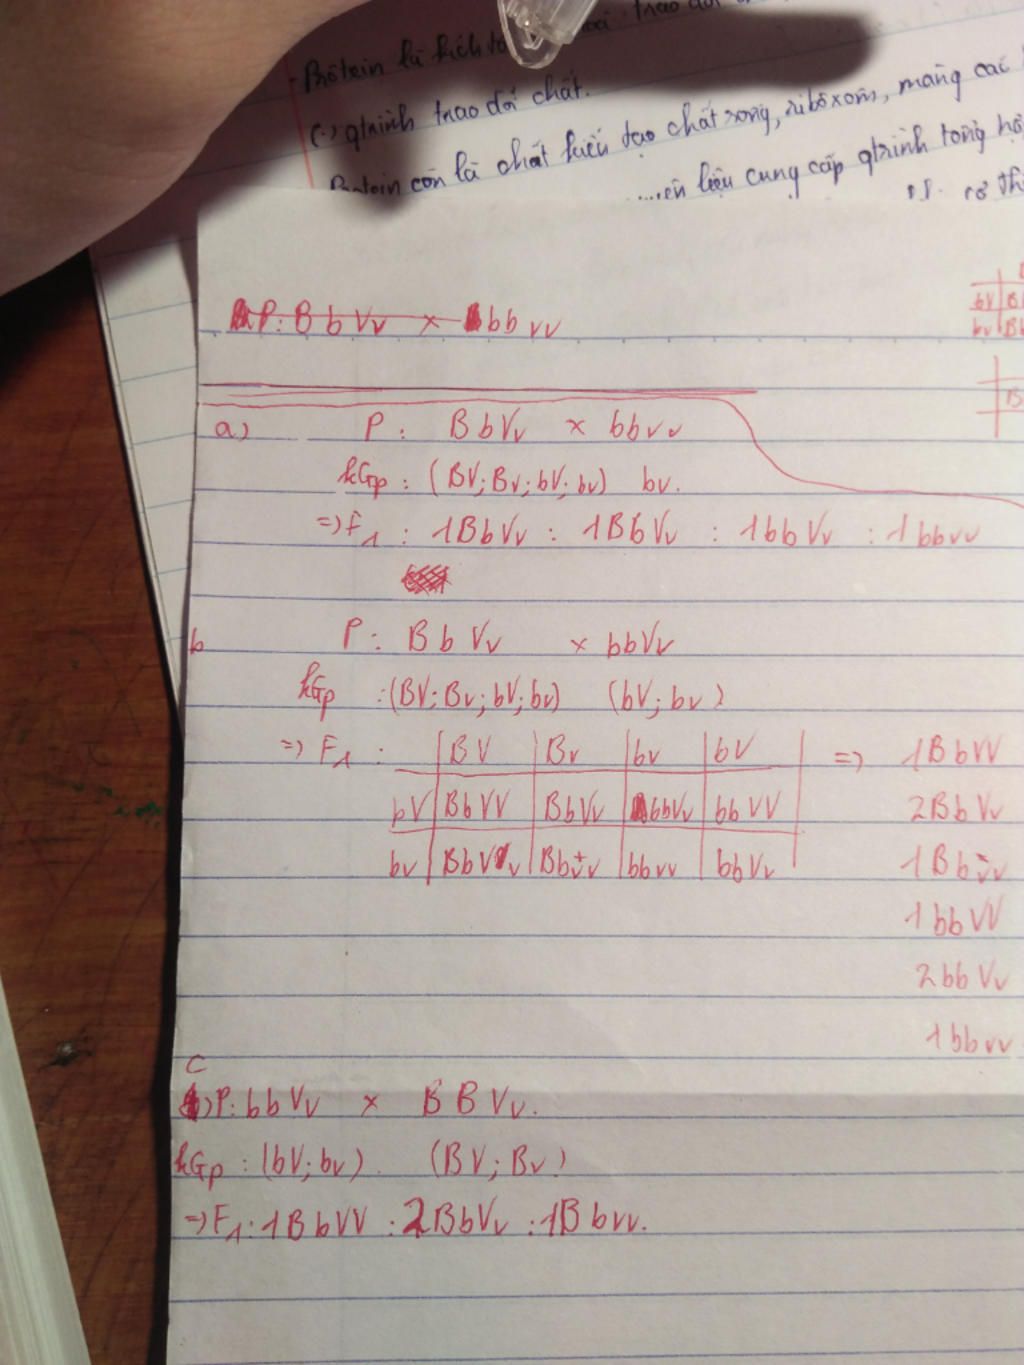 - Prôtein là
trao đổi
(.) qtrình trao đổi chất.
Protein còn là chất kiến tạo chất song, ribôxôm, màng các
...ên liệu cung cấp qtrình tổng hô
cơ thi
P: B b Vv × bb vv
bV B
bv Bb
B
a) P: BbVv × bbvv
kGp : (BV; Bv; bV; bv) bv.
=> F1 : 1BbVv : 1BbVv : 1bbVv : 1bbvv
b P: BbVv × bbVv
kGp :(BV; Bv; bV; bv) (bV; bv)
=> F1 : BV Bv bv bV => 1BbVV
bV BbVV BbVv bbVv bbVV 2BbVv
bv BbVv Bbvv bbvv bbVv 1Bbvv
1bbVV
2bbVv
1bbvv
c
)P: bbVv × BBVv.
kGp : (bV; bv). (BV; Bv)
=> F1: 1BbVV : 2BbVv : 1Bbvv.